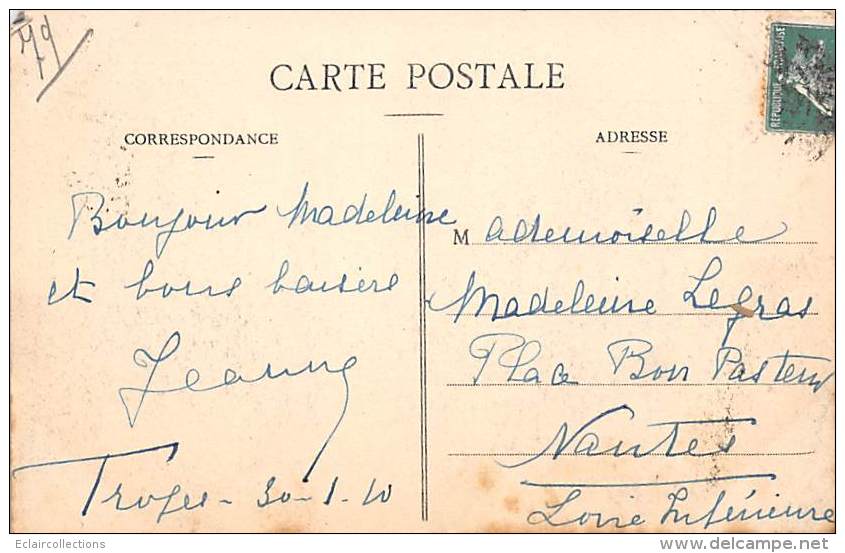 79
CARTE POSTALE
RÉPUBLIQUE FRANÇAISE
CORRESPONDANCE
Bonjour Madeleine
et bons baisers
Jeanne
Troyes - 30-1-10
ADRESSE
Mademoiselle
Madeleine Legras
Place Bon Pasteur
Nantes
Loire Inférieure
Eclaircollections
www.delcampe.net